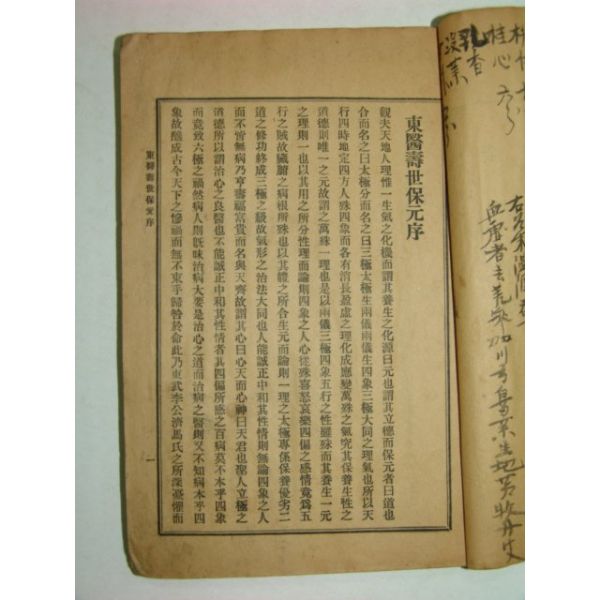 東醫壽世保元序
觀夫天地人理惟一生氣之化機而謂其養生之化源曰元也謂其立德而保元者曰道也
合而名之曰太極分而名之曰三極太極生兩儀兩儀生四象三極大同之理氣也所以天
行四時地定四方人殊四象而各有消長盈虛之理化成應變萬殊之氣究其保養生性之
道德則唯一之元故謂之萬殊一理也是以兩儀三極四象五行之性雖殊而其養生一元
之理則一也以其用之所分性理而論則四象之人心從殊喜怒哀樂四偏之感情竟爲五
行之賊故臟腑之病根所殊也以其體之所合生元而論則一理之太極專係保養優劣二
道之修功終成三極之級故氣形之治法大同也人能誠正中和其性情則無論四象之人
而不皆無病乃享壽福富貴而名與天齊故謂其心曰心天而心神曰天君也潔人立極之
道德所以謂治心之良醫也不能誠正中和其性情者其四偏所感之百病莫不本乎四象
而竟致六極之禍然病人則旣昧治病大要是治心之道而治病之醫則又不知病本乎四
象故醸成古今天下之慘禍而無不束手歸咎於命此乃東武李公濟馬氏之所深憂懼而
東醫壽世保元序
一
乳香
沒藥
桂心